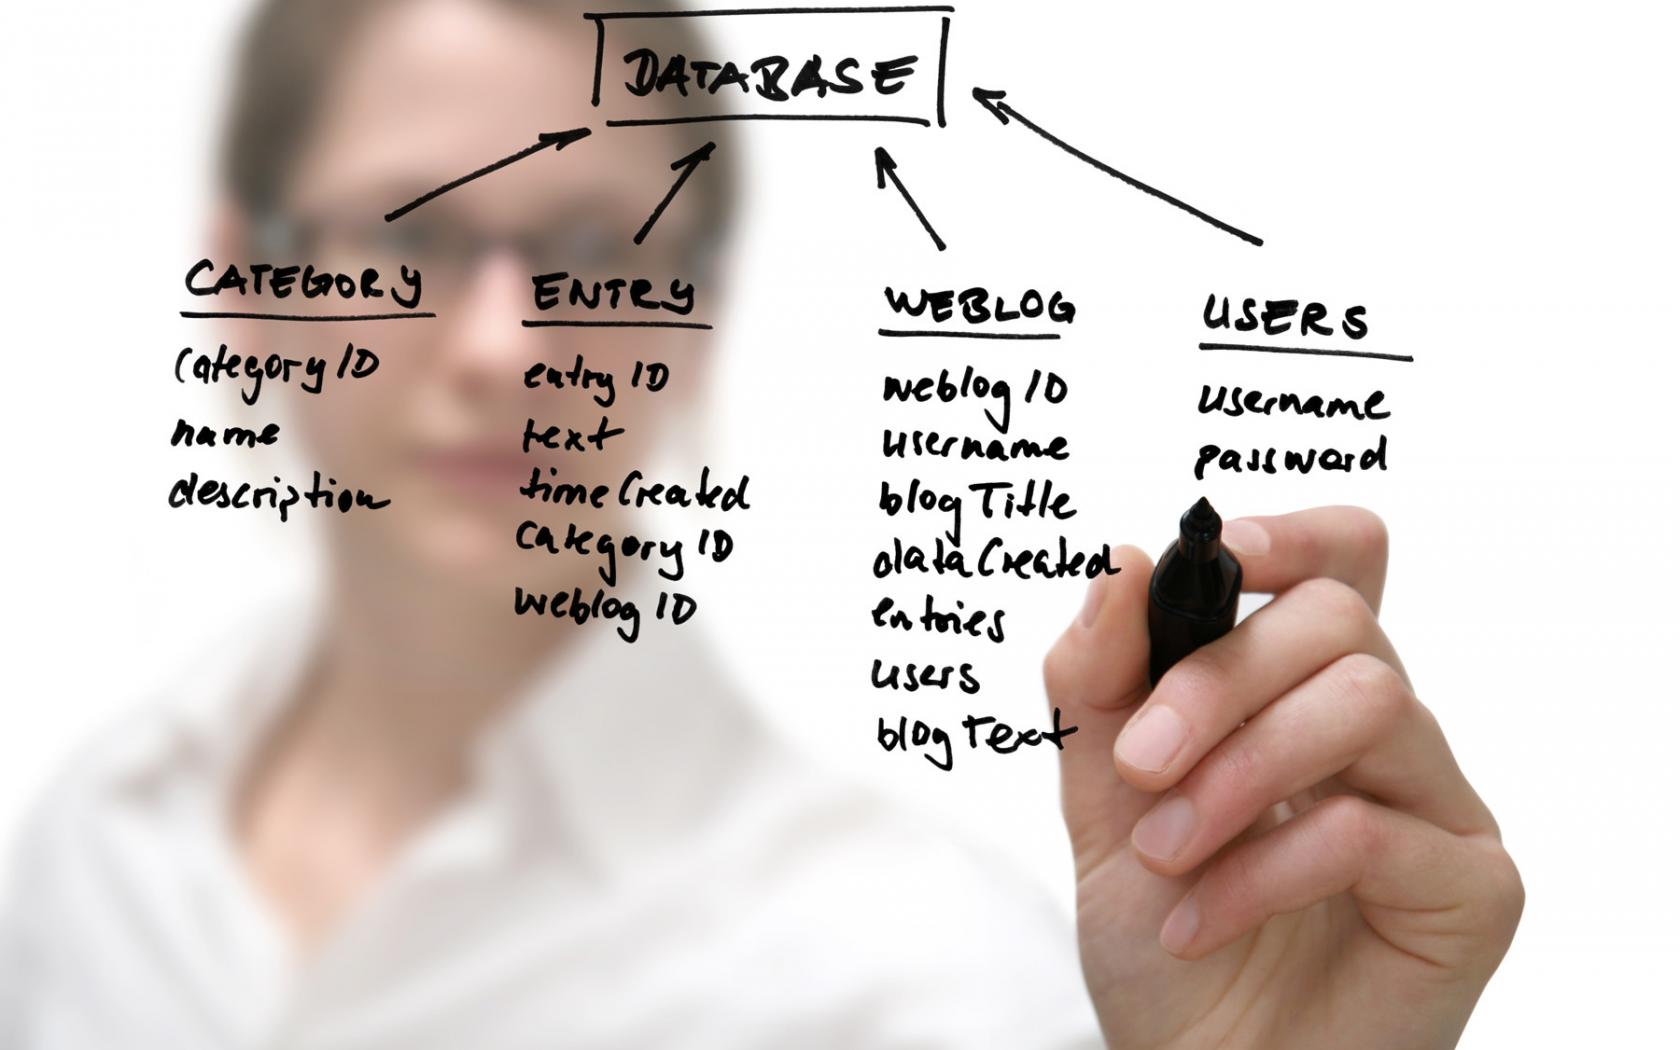 DATABASE
CATEGORY
categoryID
name
description
ENTRY
entryID
text
timeCreated
categoryID
weblogID
WEBLOG
weblogID
username
blogTitle
dataCreated
entries
users
blogText
USERS
username
password